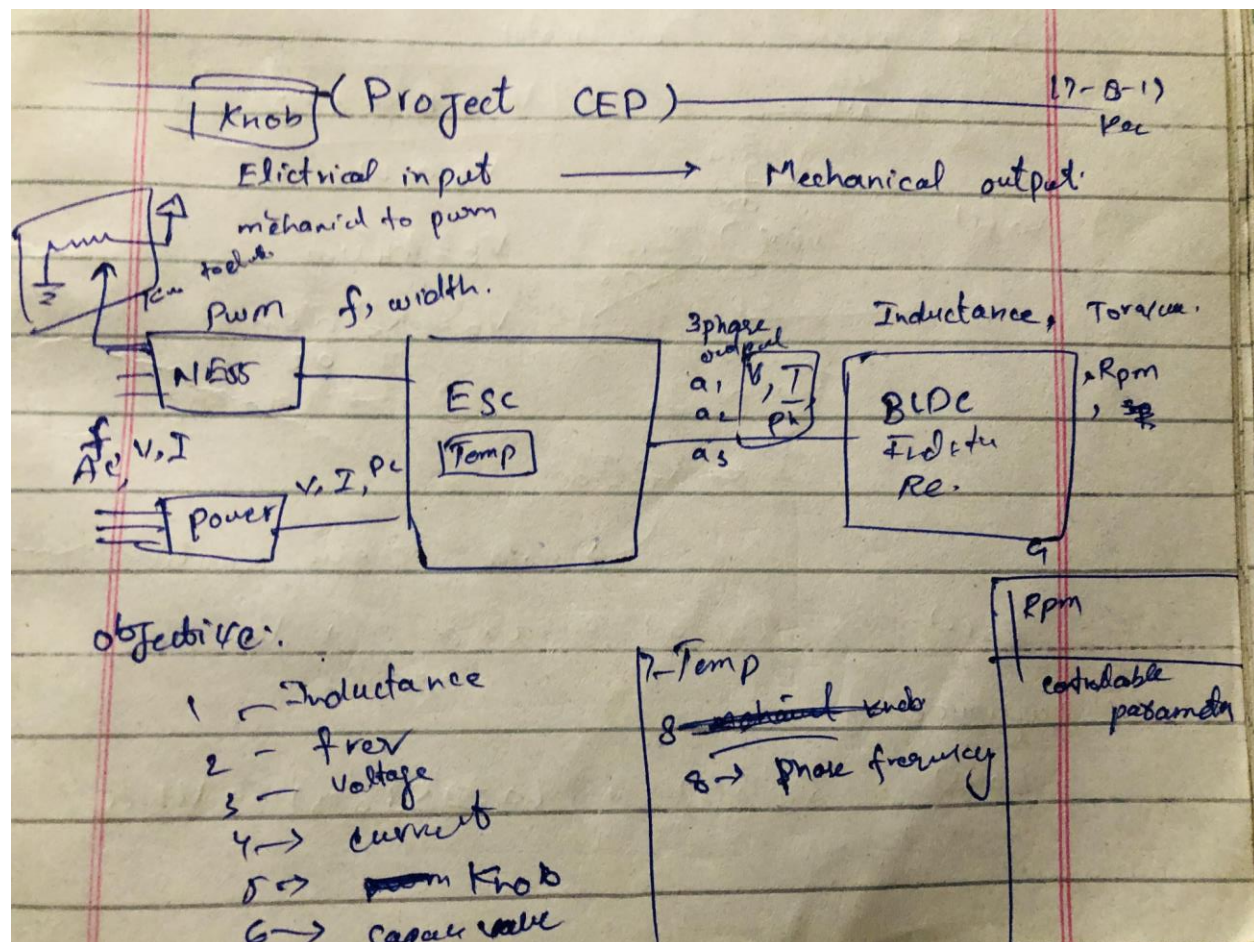 Knob (Project CEP)
Elictrical input → Mechanical output.
mehanicl to pwm
Pwm f, width.
NE55
f, V, I
Ac,
power
V, I,
ESC
Temp
3phase
output
a1
a2
a3
V, I
ph
Inductance,
BLDC
Re.
Rpm
objective:.
1 - Inductance
2 - frev
3 - voltage
4 → current
5 → Knob
6 →
7 - Temp
8 knob
8 → phase frequency
Rpm
parametr